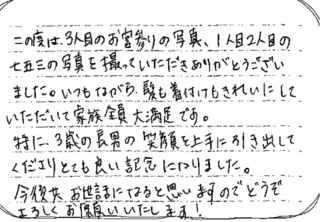 この度は、3人目のお宮参りの写真、1人目2人目の
七五三の写真を撮っていただきありがとうござい
ました。いつもながら、髪も着付けもきれいにして
いただいて家族全員大満足です。
特に、3歳の長男の笑顔を上手に引き出して
くださりとても良い記念になりました。
今後共お世話になると思いますのでどうぞ
よろしくお願いいたします!